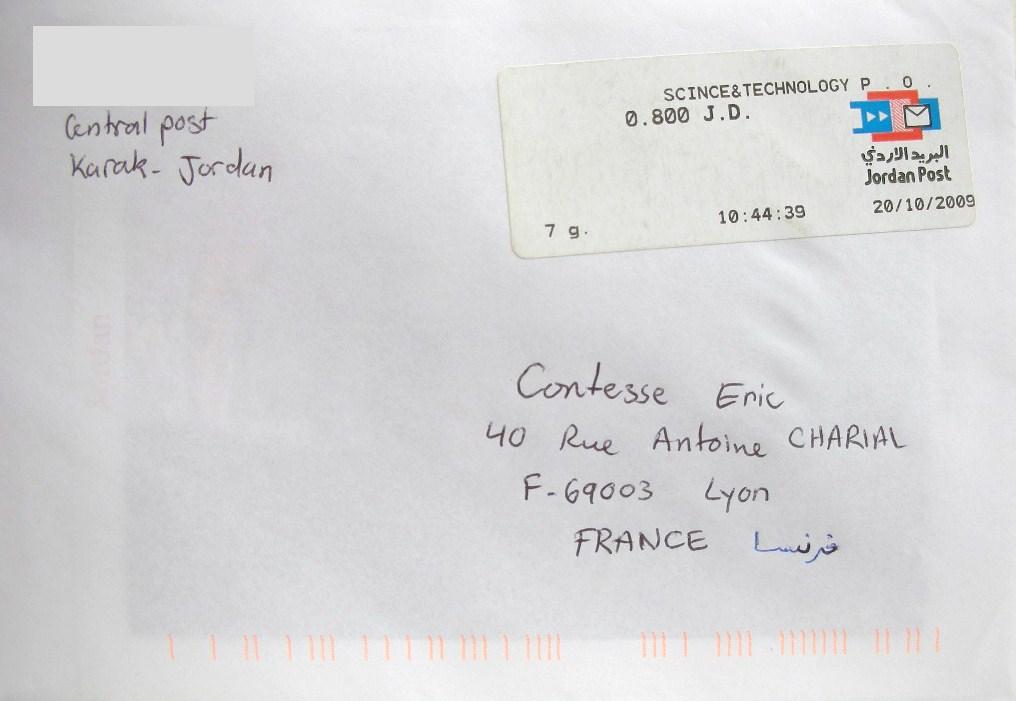 Central post
Karak - Jordan
SCINCE&TECHNOLOGY P . O .
0.800 J.D.
البريد الاردني
Jordan Post
7 g.
10:44:39
20/10/2009
Contesse Eric
40 Rue Antoine CHARIAL
F-69003 Lyon
FRANCE فرنسا